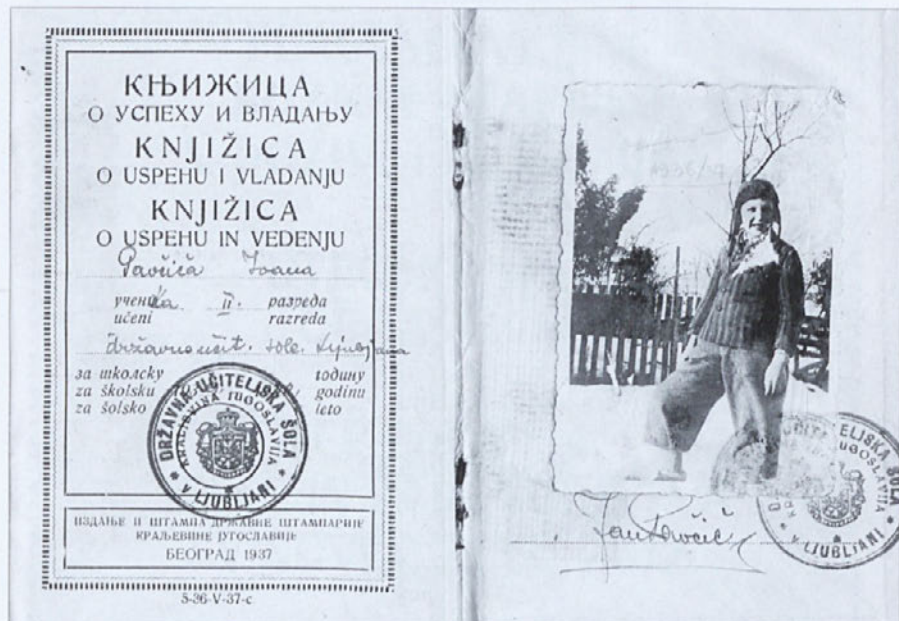 КЊИЖИЦА
О УСПЕХУ И ВЛАДАЊУ
KNJIŽICA
O USPEHU I VLADANJU
KNJIŽICA
O USPEHU IN VEDENJU
Pavčiča Ivana
учени II. разреда
učeni razreda
Državna učit. šole. Ljubljana
за школску годину
za školsku godinu
za šolsko leto
DRŽAVNA UČITELJSKA ŠOLA
V LJUBLJANI
KRALJEVINA JUGOSLAVIJA
ИЗДАЊЕ И ШТАМПА ДРЖАВНЕ ШТАМПАРИЈЕ
КРАЉЕВИНЕ ЈУГОСЛАВИЈЕ
БЕОГРАД 1937
5-36-V-37-c
UČITELJSKA ŠOLA
JUGOSLAVIJA
V LJUBLJANI